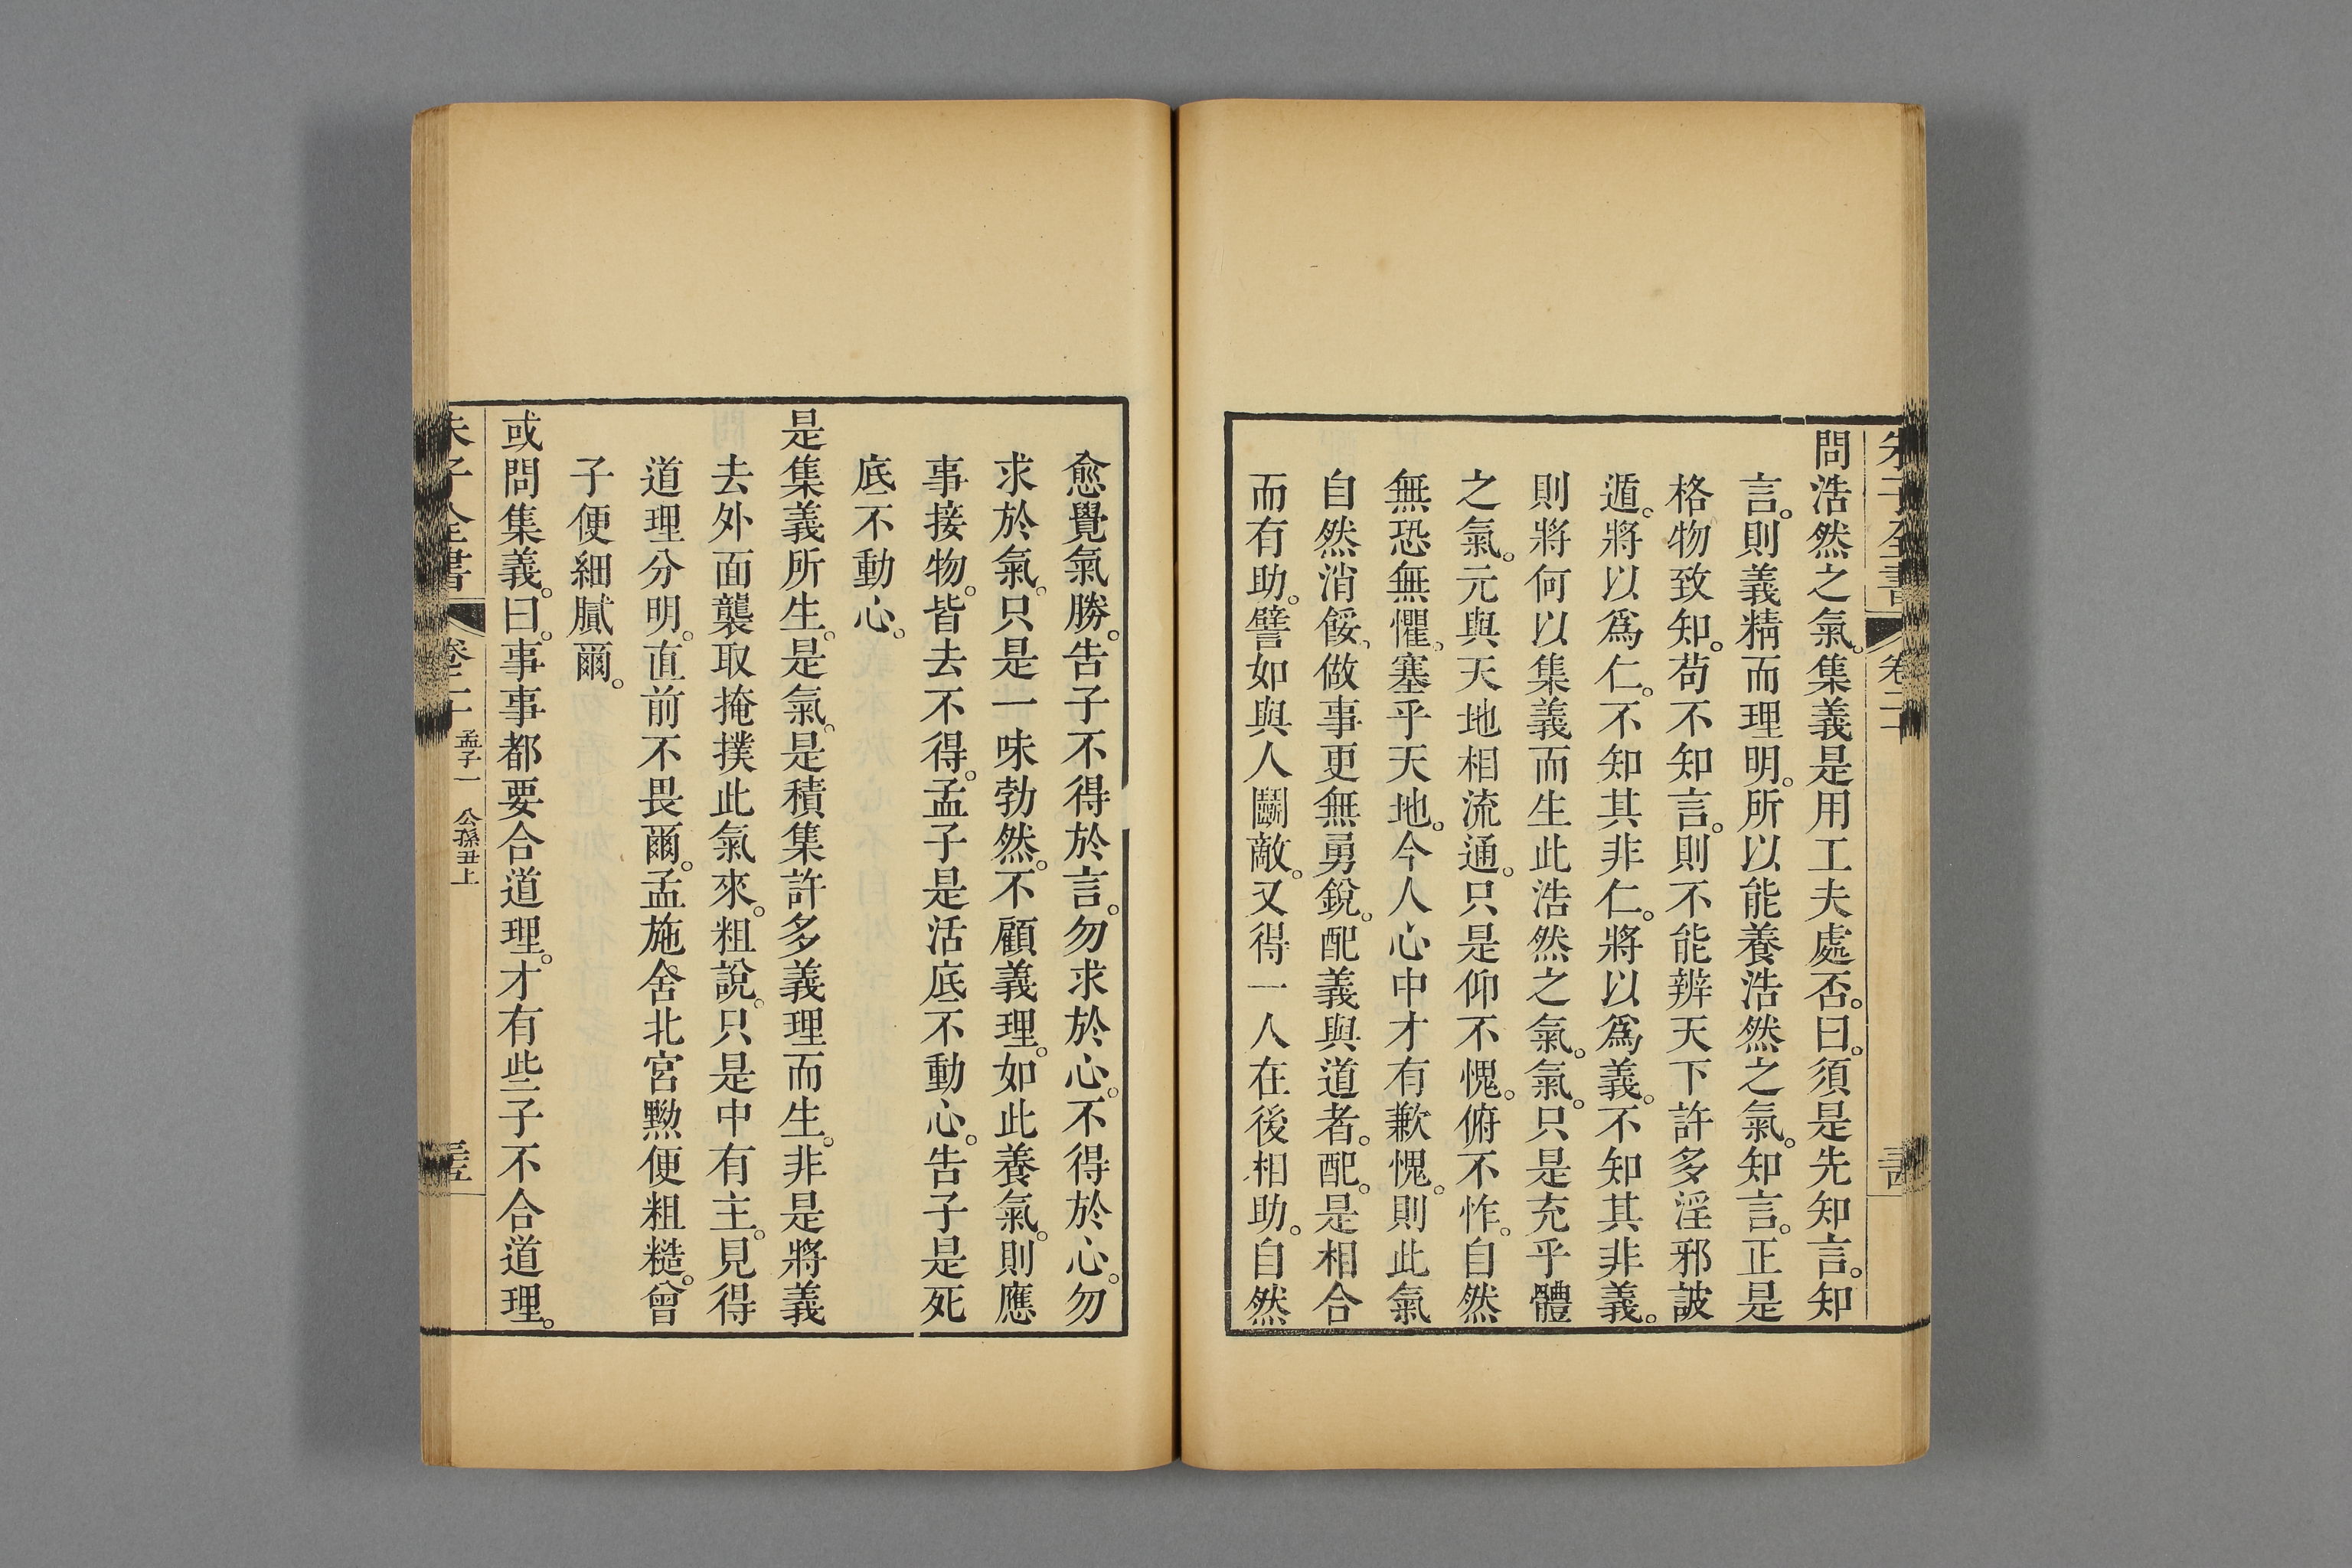 朱子全書 卷二十
問浩然之氣。集義是用工夫處否。曰。須是先知言。知
言。則義精而理明。所以能養浩然之氣。知言。正是
格物致知。苟不知言。則不能辨天下許多淫邪詖
遁。將以爲仁。不知其非仁。將以爲義。不知其非義。
則將何以集義而生此浩然之氣。氣。只是充乎體
之氣。元與天地相流通。只是仰不愧。俯不怍。自然
無恐無懼。塞乎天地。今人心中才有歉愧。則此氣
自然消餒。做事更無勇銳。配義與道者。配。是相合
而有助。譬如與人鬭敵。又得一人在後相助。自然
愈覺氣勝。告子不得於言。勿求於心。不得於心。勿
求於氣。只是一味勃然。不顧義理。如此養氣。則應
事接物。皆去不得。孟子是活底不動心。告子是死
底不動心。
是集義所生。是氣。是積集許多義理而生。非是將義
去外面襲取掩撲此氣來。粗說。只是中有主。見得
道理分明。直前不畏爾。孟施舍北宮黝便粗糙。曾
子便細膩爾。
或問集義。曰。事事都要合道理。才有些子不合道理。
朱子全書 卷二十 孟子一 公孫丑上